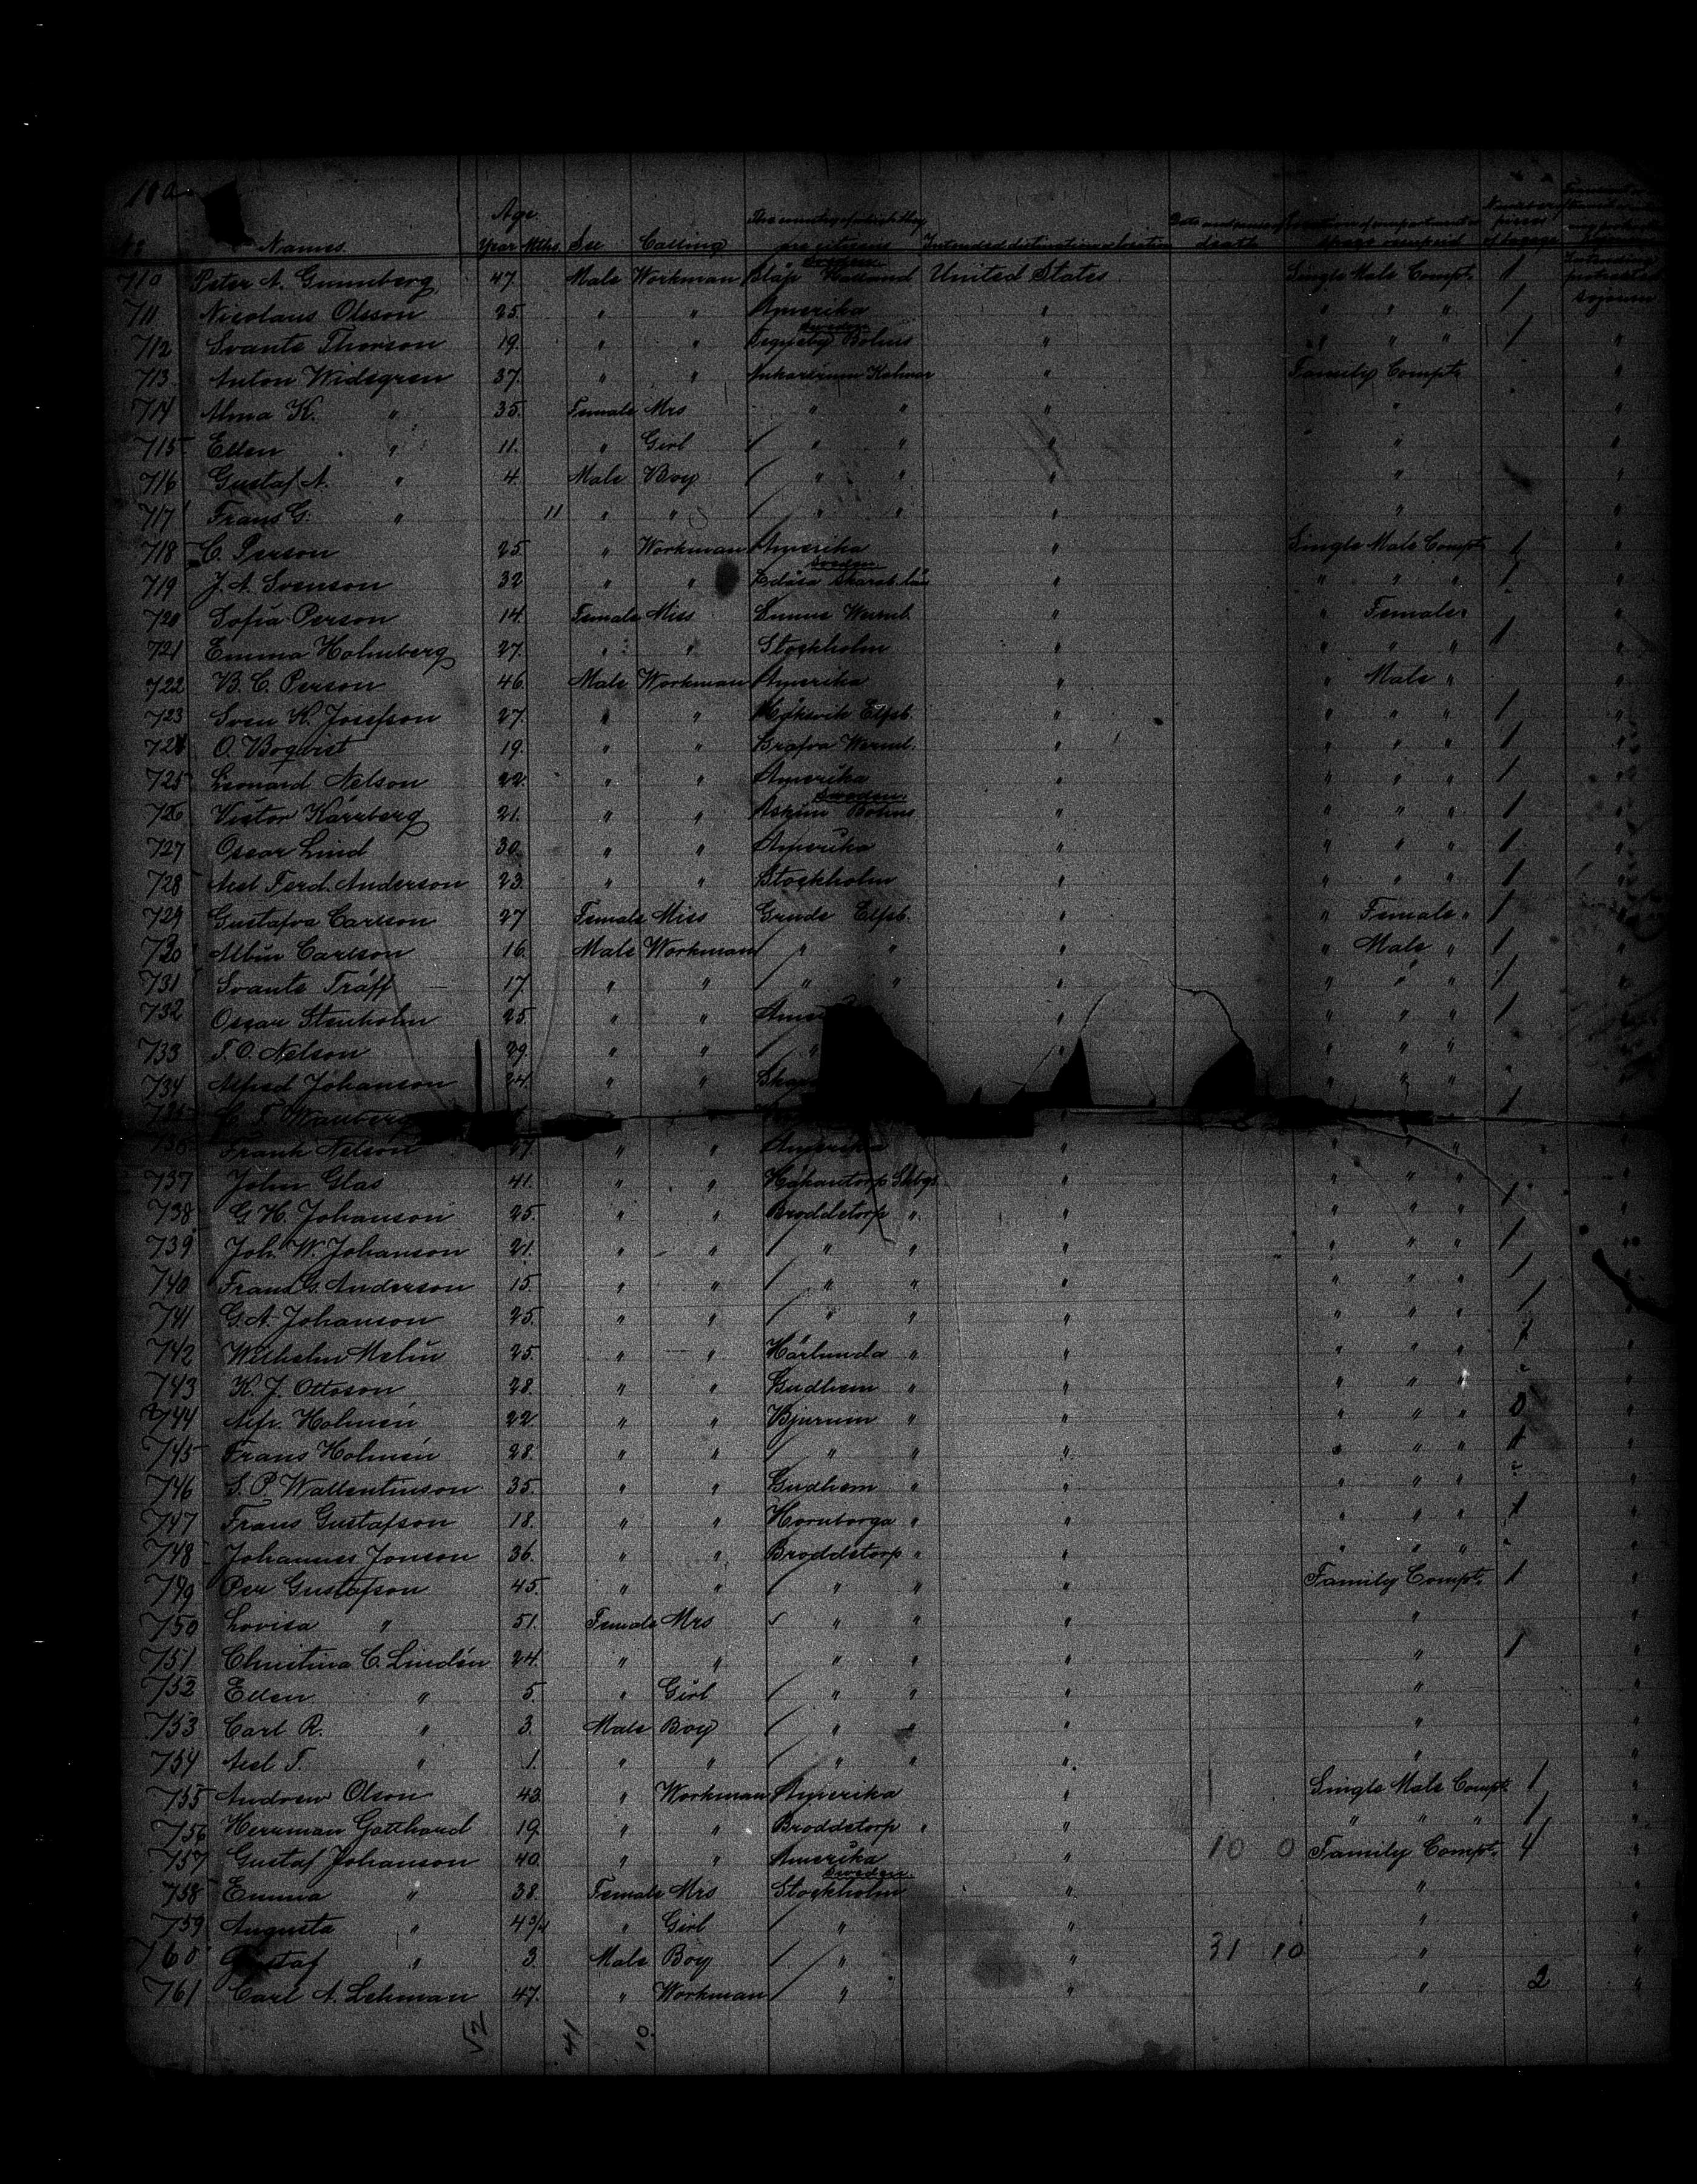 No Names Age Year Mths. Sex Calling The country of which they are citizens Intended destination or location Date and cause of death Location of compartment or space occupied Number of pieces of bagage
710 Peter A. Gunneberg 47. Male Workman Sweden Halland United States Single Male Compt. 1 Intending protracted sojourn
711 Nicolaus Olsson 25. " " Amerika " " " " 1
712 Svante Thorson 19. " " Sweden Bohus " " " " 1 "
713 Anton Widegren 37. " " Ankarsrum Kalmar " Family Compt. "
714 Alma K. " 35. Female Mrs " " " " "
715 Ellen " 11. " Girl / " " " " "
716 Gustaf A. " 4. Male Boy / " " " " "
717 Frans G. " 11 " " / " " " " "
718 C. Person 25. " Workman Amerika " Single Male Compt. 1 "
719 J. A. Svenson 32 " " Sweden Edåsa Skarab. län " " " " 1 "
720 Sofia Person 14. Female Miss Sunne Werml. " " Female " "
721 Emma Holmberg 27. " " Stockholm " " " " 1 "
722 B. C. Person 46. Male Workman Amerika " " Male " "
723 Sven K. Josefson 27. " " Elfsb. " " " " 1 "
724 O. Boqvist 19. " " Brafva Werml. " " " " 1 "
725 Leonard Nelson 22. " " Amerika " " " " 1 "
726 Victor Kärrberg 21. " " Sweden Askim Bohus " " " " 1 "
727 Oscar Lind 30. " " Amerika " " " " 1 "
728 Axel Ferd. Anderson 23. " " Stockholm " " " " 1 "
729 Gustafva Carlson 27 Female Miss Grude Elfsb. " " Female " 1
730 Albin Carlson 16. Male Workman / " " " " Male " 1 "
731 Svante Träff 17. " " / " " " " " " 1 "
732 Oscar Stenholm 25. " " Amer " " " 1
733 T. O. Nelson 29. " " / " " " " " "
734 Alfred Johanson 24. " " Skara " " " " "
735 C. F. Wanberg 1
736 Frank Nelson 27. " " Amerika " " " " "
737 John Glas 41. " " Håkantorp Skbgs. " " " " "
738 G. H. Johanson 25. " " Broddetorp " " " " " 1 "
739 Joh. W. Johanson 21. " " / " " " " " " 1 "
740 Frans G. Anderson 15. " " / " " " " " " 1 "
741 G. A. Johanson 25. " " / " " " " " " 1 "
742 Wilhelm Melin 25. " " Härlunda " " " " " 1 "
743 K. J. Ottoson 28. " " Gudhem " " " " " "
744 Alfr. Holmén 22. " " Bjurum " " " " " 0 "
745 Frans Holmén 28. " " / " " " " " " 1 "
746 S. P. Wallentinson 35. " " Gudhem " " " " " "
747 Frans Gustafson 18. " " Hornborga " " " " " 1 "
748 Johannes Jonson 36. " " Broddetorp " " " " " "
749 Per Gustafson 45. " " / " " " Family Compt. 1 "
750 Lovisa " 51. Female Mrs " " " " "
751 Christina C. Lindén 24. " " " " " " 1 "
752 Ellen " 5. " Girl / " " " " "
753 Carl R. " 3. Male Boy / " " " " "
754 Axel T. " 1. " " / " " " " "
755 Andrew Olson 43. " Workman Amerika " Single Male Compt. 1 "
756 Herrman Gotthard 19. " " Broddetorp " " " " " 1 "
757 Gustaf Johanson 40. " " Amerika " 10 0 Family Compt. 4 "
758 Emma " 38. Female Mrs Sweden Stockholm " " "
759 Augusta " 4 3/4 " Girl / " " " "
760 Gustaf " 3. Male Boy / " " 31 10 " "
761 Carl A. Lehman 47. " Workman / " " " 2 "
52 41 10.